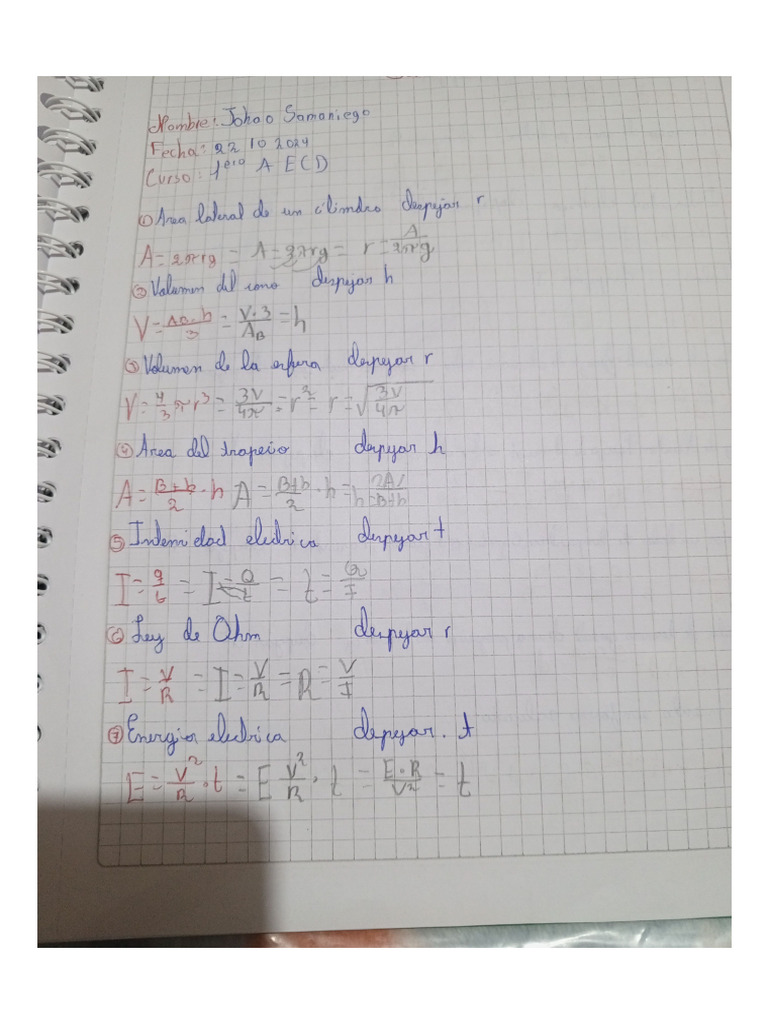 Nombre: Johao Samaniego
Fecha: 22 10 2024
Curso: 1ero A ECD
① Area lateral de un cilindro despejar r
A = 2πrg = A = 2πrg = r = A/2πg
② Volumen del cono despejar h
V = AB·h/3 = V·3/AB = h
③ Volumen de la esfera despejar r
V = 4/3 πr³ = 3V/4π = r³ = r = √3V/4π
④ Area del trapecio despejar h
A = B+b/2 · h A = B+b/2 · h = h = 2A/B+b
⑤ Intensidad electrica despejar t
I = q/t = I = Q/t = t = Q/I
⑥ Ley de Ohm despejar r
I = V/R = I = V/R = R = V/I
⑦ Energia electrica despejar. t
E = V²/R · t = E V²/R · t = E·R/V² = t